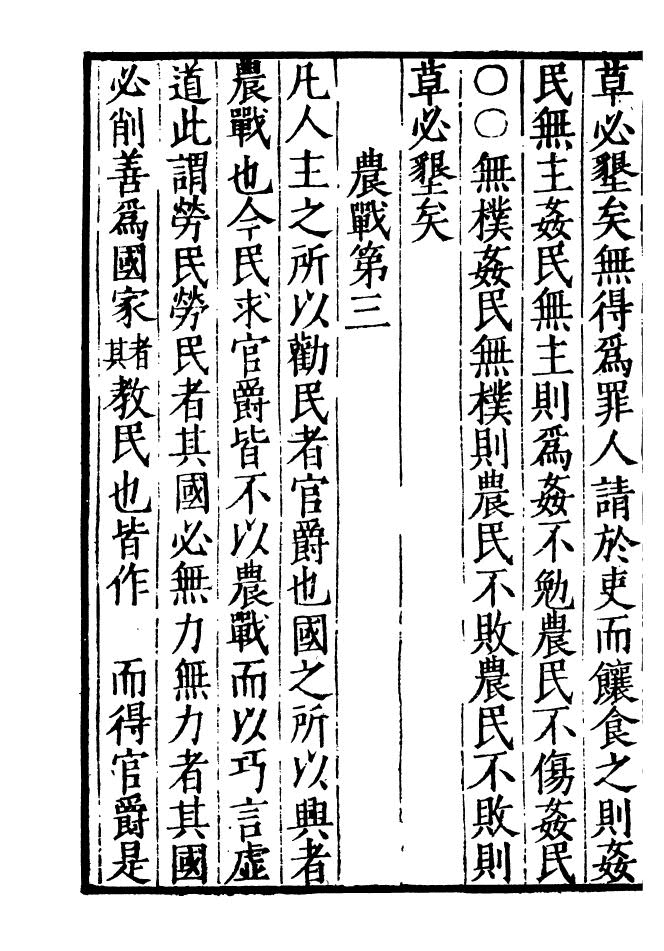 草必墾矣無得爲罪人請於吏而饟食之則姦
民無主姦民無主則爲姦不勉農民不傷姦民
○○無樸姦民無樸則農民不敗農民不敗則
草必墾矣
農戰第三
凡人主之所以勸民者官爵也國之所以興者
農戰也今民求官爵皆不以農戰而以巧言虛
道此謂勞民勞民者其國必無力無力者其國
必削善爲國家者其教民也皆作　而得官爵是